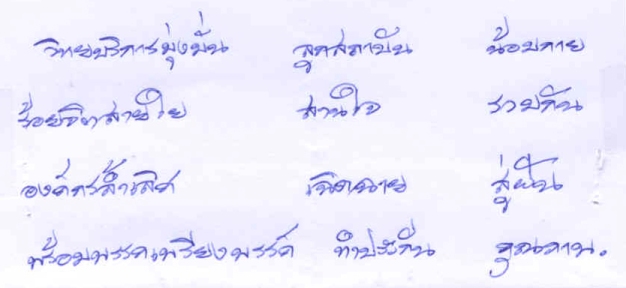 วิทยบริการมุ่งมั่น ลูกสถาบัน น้อมกาย
ร้อยจิตสายใย สานใจ รวมกัน
องค์กรล้ำเลิศ เฉิดฉาย สู่ฝัน
พร้อมพรรคเพรียงพรรค์ ทำประกัน คุณภาพ.